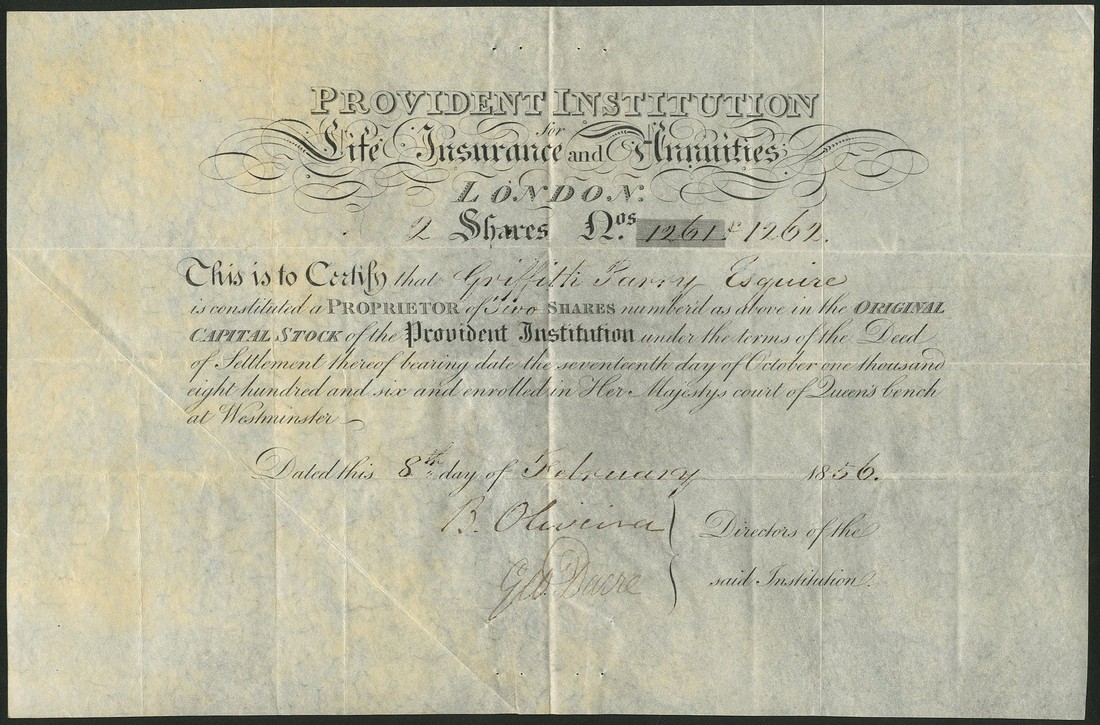 PROVIDENT INSTITUTION
for
Life Insurance and Annuities
LONDON.
2 Shares Nos. 1261 & 1262.
This is to Certify that Griffith Parry Esquire
is constituted a PROPRIETOR of Two SHARES number'd as above in the ORIGINAL
CAPITAL STOCK of the Provident Institution under the terms of the Deed
of Settlement thereof bearing date the seventeenth day of October one thousand
eight hundred and six and enrolled in Her Majestys court of Queen's bench
at Westminster
Dated this 8th day of February 1856.
B. Oliveira
Directors of the
Geo. Dacre
said Institution.